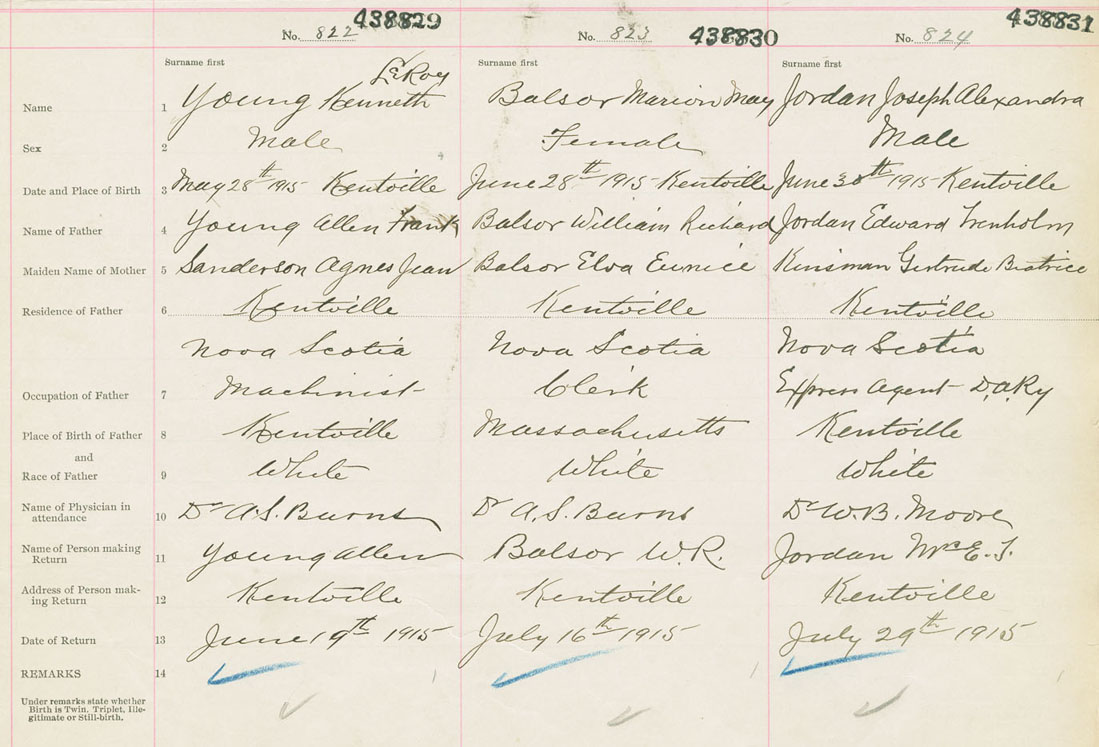 438829 438830 438831
No. 822 No. 823 No. 824
Surname first Surname first Surname first
LeRoy
Name 1 Young Kenneth Balsor Marion May Jordan Joseph Alexandra
Sex 2 Male Female Male
Date and Place of Birth 3 May 28th 1915 Kentville June 28th 1915 Kentville June 30th 1915 Kentville
Name of Father 4 Young Allen Frank Balsor William Richard Jordan Edward Trenholm
Maiden Name of Mother 5 Sanderson Agnes Jean Balsor Elva Eunice Kinsman Gertrude Beatrice
Residence of Father 6 Kentville Kentville Kentville
Nova Scotia Nova Scotia Nova Scotia
Occupation of Father 7 Machinist Clerk Express Agent D.A.Ry
Place of Birth of Father 8 Kentville Massachusetts Kentville
and
Race of Father 9 White White White
Name of Physician in
attendance 10 Dr A.S. Burns Dr A.S. Burns Dr W.B. Moore
Name of Person making
Return 11 Young Allen Balsor W.R. Jordan Mrs E.T.
Address of Person mak-
ing Return 12 Kentville Kentville Kentville
Date of Return 13 June 19th 1915 July 16th 1915 July 29th 1915
REMARKS 14
Under remarks state whether
Birth is Twin, Triplet, Ille-
gitimate or Still-birth.